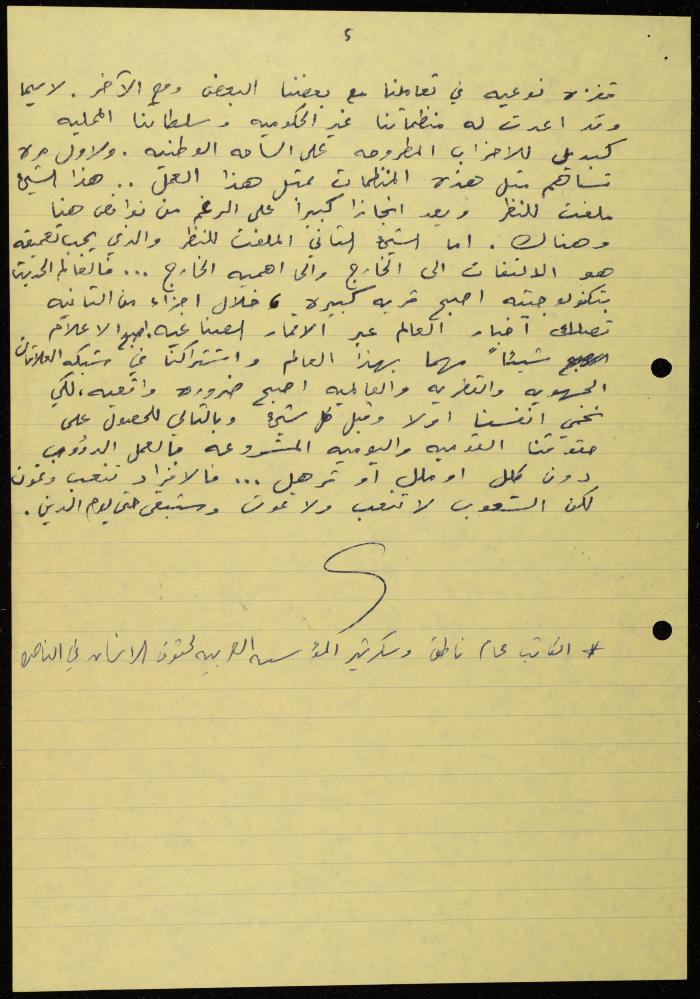 ٥
قفزه نوعيه في تعاملنا مع بعضنا البعض ومع الآخر. لاسيما
وقد اعدت له منظماتنا غير الحكوميه وسلطاتنا المحليه
كبديل للاحزاب المطروحه على الساحه الوطنيه. ولاول مره
تساهم مثل هذه المنظمات بمثل هذا العمل .. هذا الشيء
ملفت للنظر ويعد انجازا كبيرا على الرغم من نواقص هنا
وهناك. اما الشيء الثاني الملفت للنظر والذي يجب تعميقه
هو الالتفات الى الخارج والى اهميه الخارج ... فالعالم الحديث
بتكنولوجيته اصبح قريه كبيره، خلال اجزاء من الثانيه
تصلك أخبار العالم عبر الاقمار الصناعيه. اصبح الاعلام
شيئاً مهما بهذا العالم واشتراكنا في شبكه العلاقات
الجهويه والقطريه والعالميه اصبح ضروره واقعيه، لكي
نحمي انفسنا اولا وقبل كل شيء وبالتالي للحصول على
حقوقنا القوميه واليوميه المشروعه فالعمل الدؤوب
دون كلل او ملل أو ترهل ... فالافراد تتعب وتموت
لكن الشعوب لا تتعب ولا تموت وستبقى حتى يوم الدين.
* الكاتب محام ناطق وسكرتير المؤسسه العربيه لحقوق الانسان في الناصره